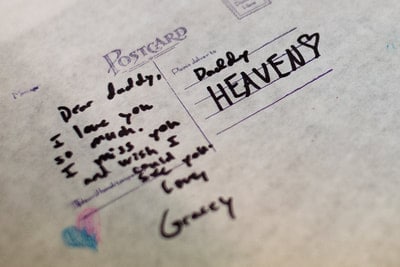 POSTCARD
Please deliver to
Daddy
HEAVEN
Dear daddy,
I love you
so much. you
I miss
and wish I
could
see you.
Love,
Gracey